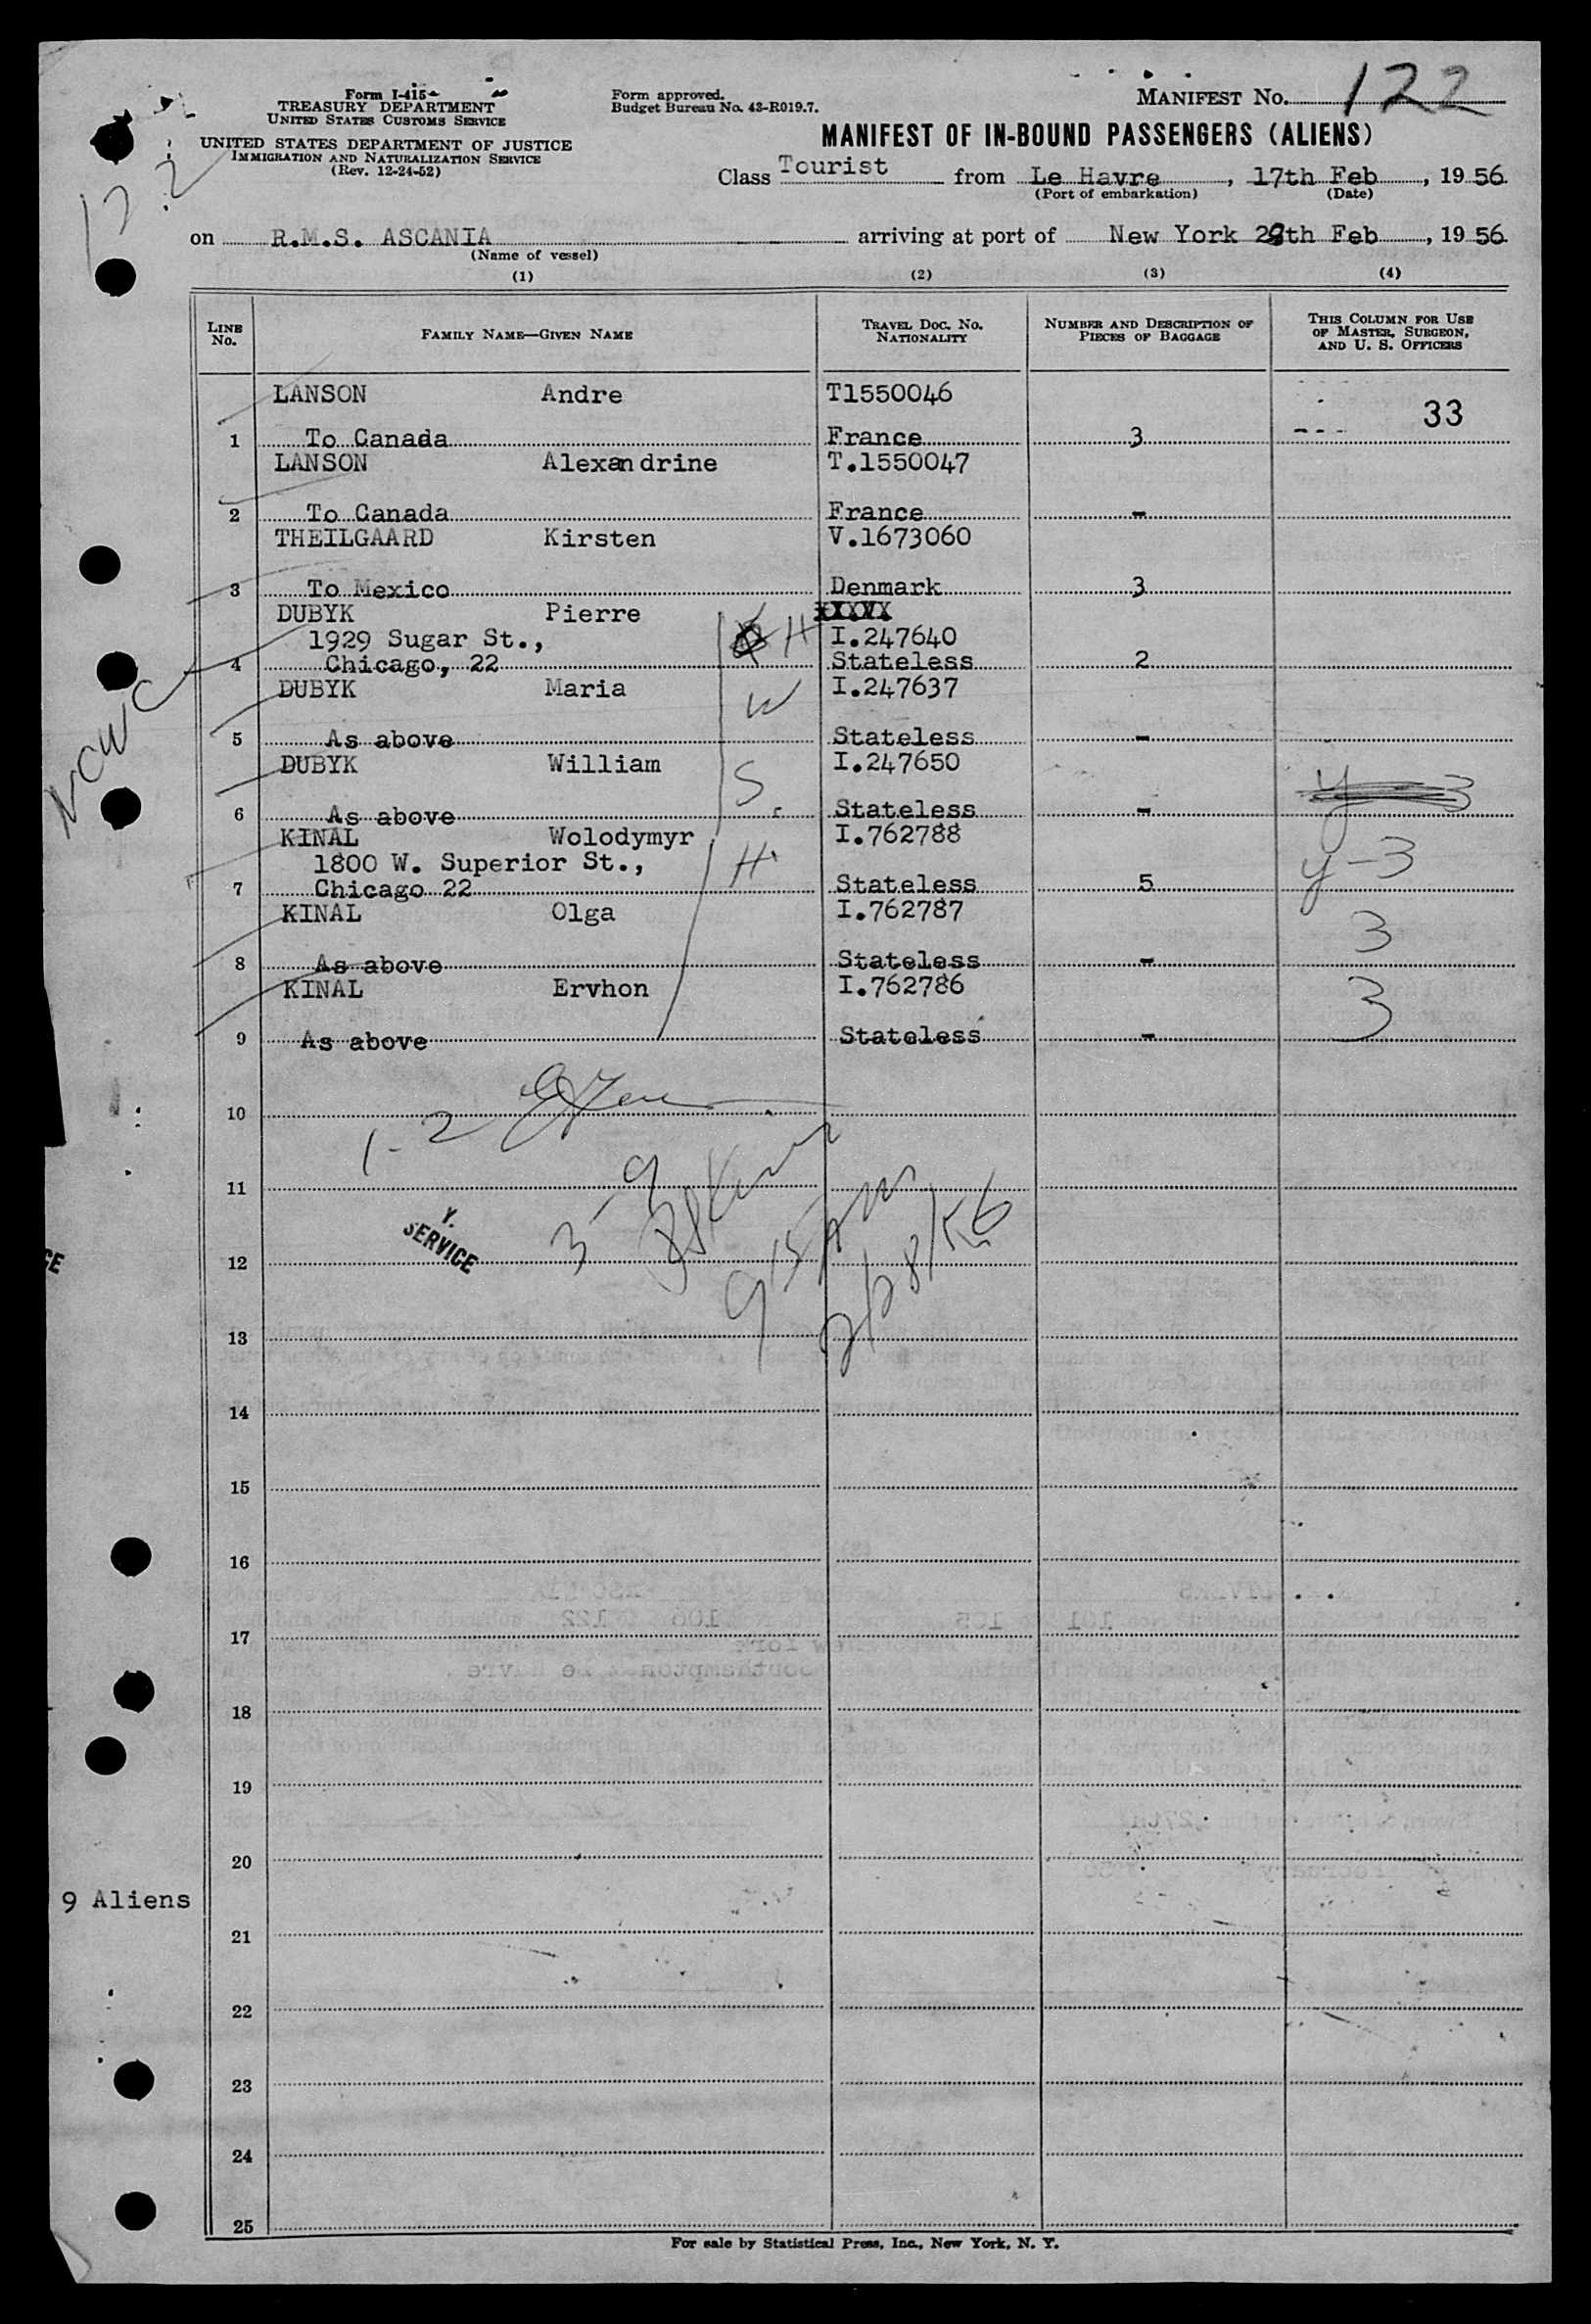 Form I-415
TREASURY DEPARTMENT
UNITED STATES CUSTOMS SERVICE
UNITED STATES DEPARTMENT OF JUSTICE
IMMIGRATION AND NATURALIZATION SERVICE
(Rev. 12-24-52)
Form approved.
Budget Bureau No. 43-R019.7.
MANIFEST No. 122
MANIFEST OF IN-BOUND PASSENGERS (ALIENS)
Class Tourist from Le Havre, 17th Feb, 1956
(Port of embarkation) (Date)
122
on R.M.S. ASCANIA arriving at port of New York 28th Feb, 1956
(Name of vessel)
(1) (2) (3) (4)
LINE No. FAMILY NAME—GIVEN NAME TRAVEL DOC. NO. NATIONALITY NUMBER AND DESCRIPTION OF PIECES OF BAGGAGE THIS COLUMN FOR USE OF MASTER, SURGEON, AND U. S. OFFICERS
LANSON Andre T1550046
33
1 To Canada France 3
LANSON Alexandrine T.1550047
2 To Canada France -
THEILGAARD Kirsten V.1673060
3 To Mexico Denmark 3
DUBYK Pierre XXXVX
1929 Sugar St., H I.247640
4 Chicago, 22 Stateless 2
DUBYK Maria W I.247637
NCWC
5 As above Stateless -
DUBYK William S I.247650
6 As above Stateless - y-3
KINAL Wolodymyr I.762788
1800 W. Superior St., H y-3
7 Chicago 22 Stateless 5
KINAL Olga I.762787
8 As above Stateless - 3
KINAL Ervhon I.762786
9 As above Stateless - 3
10
1-2
11
3-9
Y.
SERVICE
CE
12
915 AM
2/28/56
13
14
15
16
17
18
19
20
9 Aliens
21
22
23
24
25
For sale by Statistical Press, Inc., New York, N. Y.